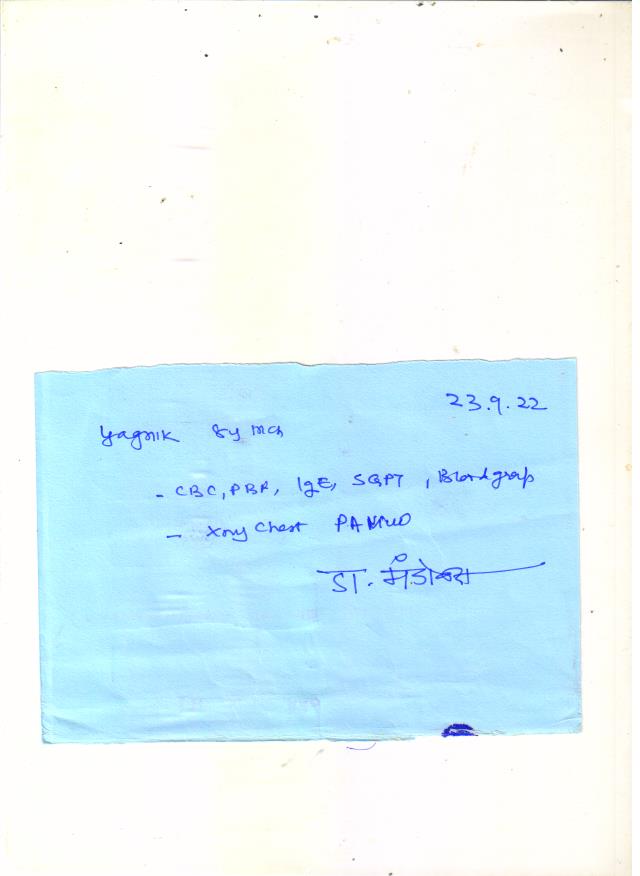 23.9.22
Yagnik 8y mch
- CBC, PBF, IgE, SGPT, Blood group
- Xray Chest PA
डा.